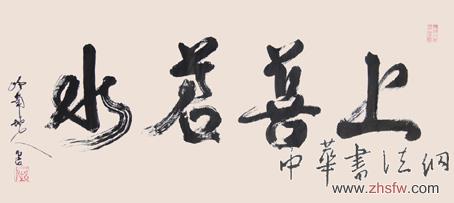 上善若水
中華書法網
www.zhsfw.com